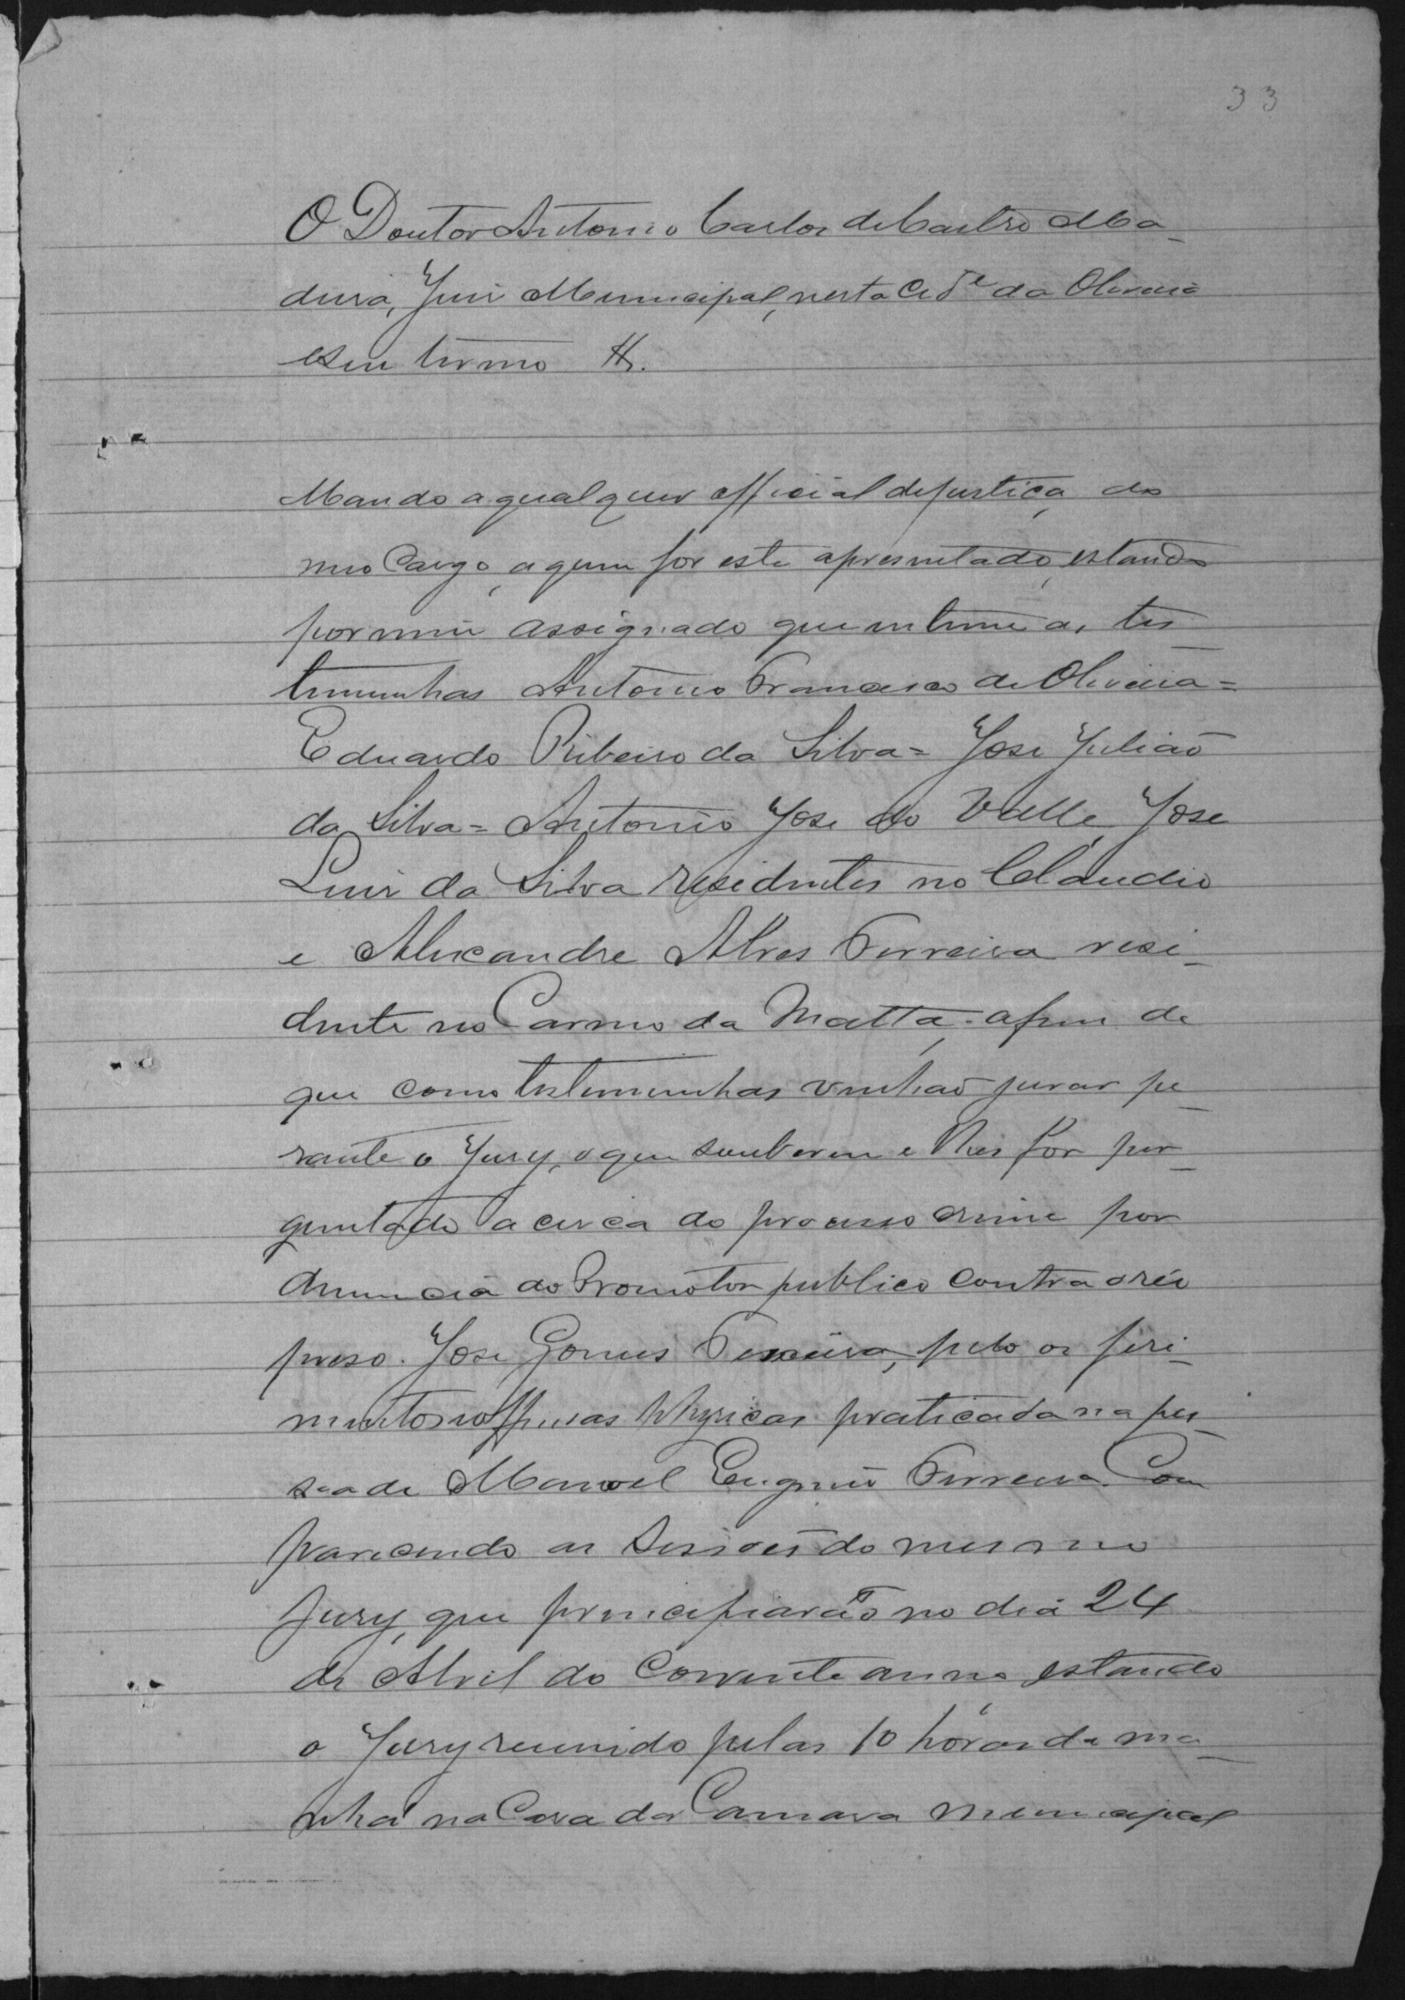 33
O Doutor Antonio Carlos de Castro Ma-
dura, Juiz Municipal, nesta Cid.e da Oliveira
e seu termo &.
Mando a qualquer official de justiça, do
meo Cargo, a quem for este apresentado, estando
por mim assignado que intime as tes-
timunhas Antonio Francisco de Oliveira =
Eduardo Ribeiro da Silva = José Julião
da Silva = Antonio José do Valle, José
Luiz da Silva residentes no Claudio
e Alexandre Alves Ferreira resi-
dente no Carmo da Matta, afim de
que como testimunhas venhão jurar pe-
rante o Jury, o que souberem e lhes for per-
guntado acerca do processo crime por
denuncia do Promotor publico contra o réo
preso. José Gomes Teixeira, pelo os feri-
mentos offensas phyzicas praticada na pes-
soa de Manoel Eugenio Ferreira. Com
parecendo as Sessões do mesmo
Jury, que principiarão no dia 24
de Abril do Corrente anno, estando
o Jury reunido pelas 10 horas da ma-
nhã na Casa da Camara municipal